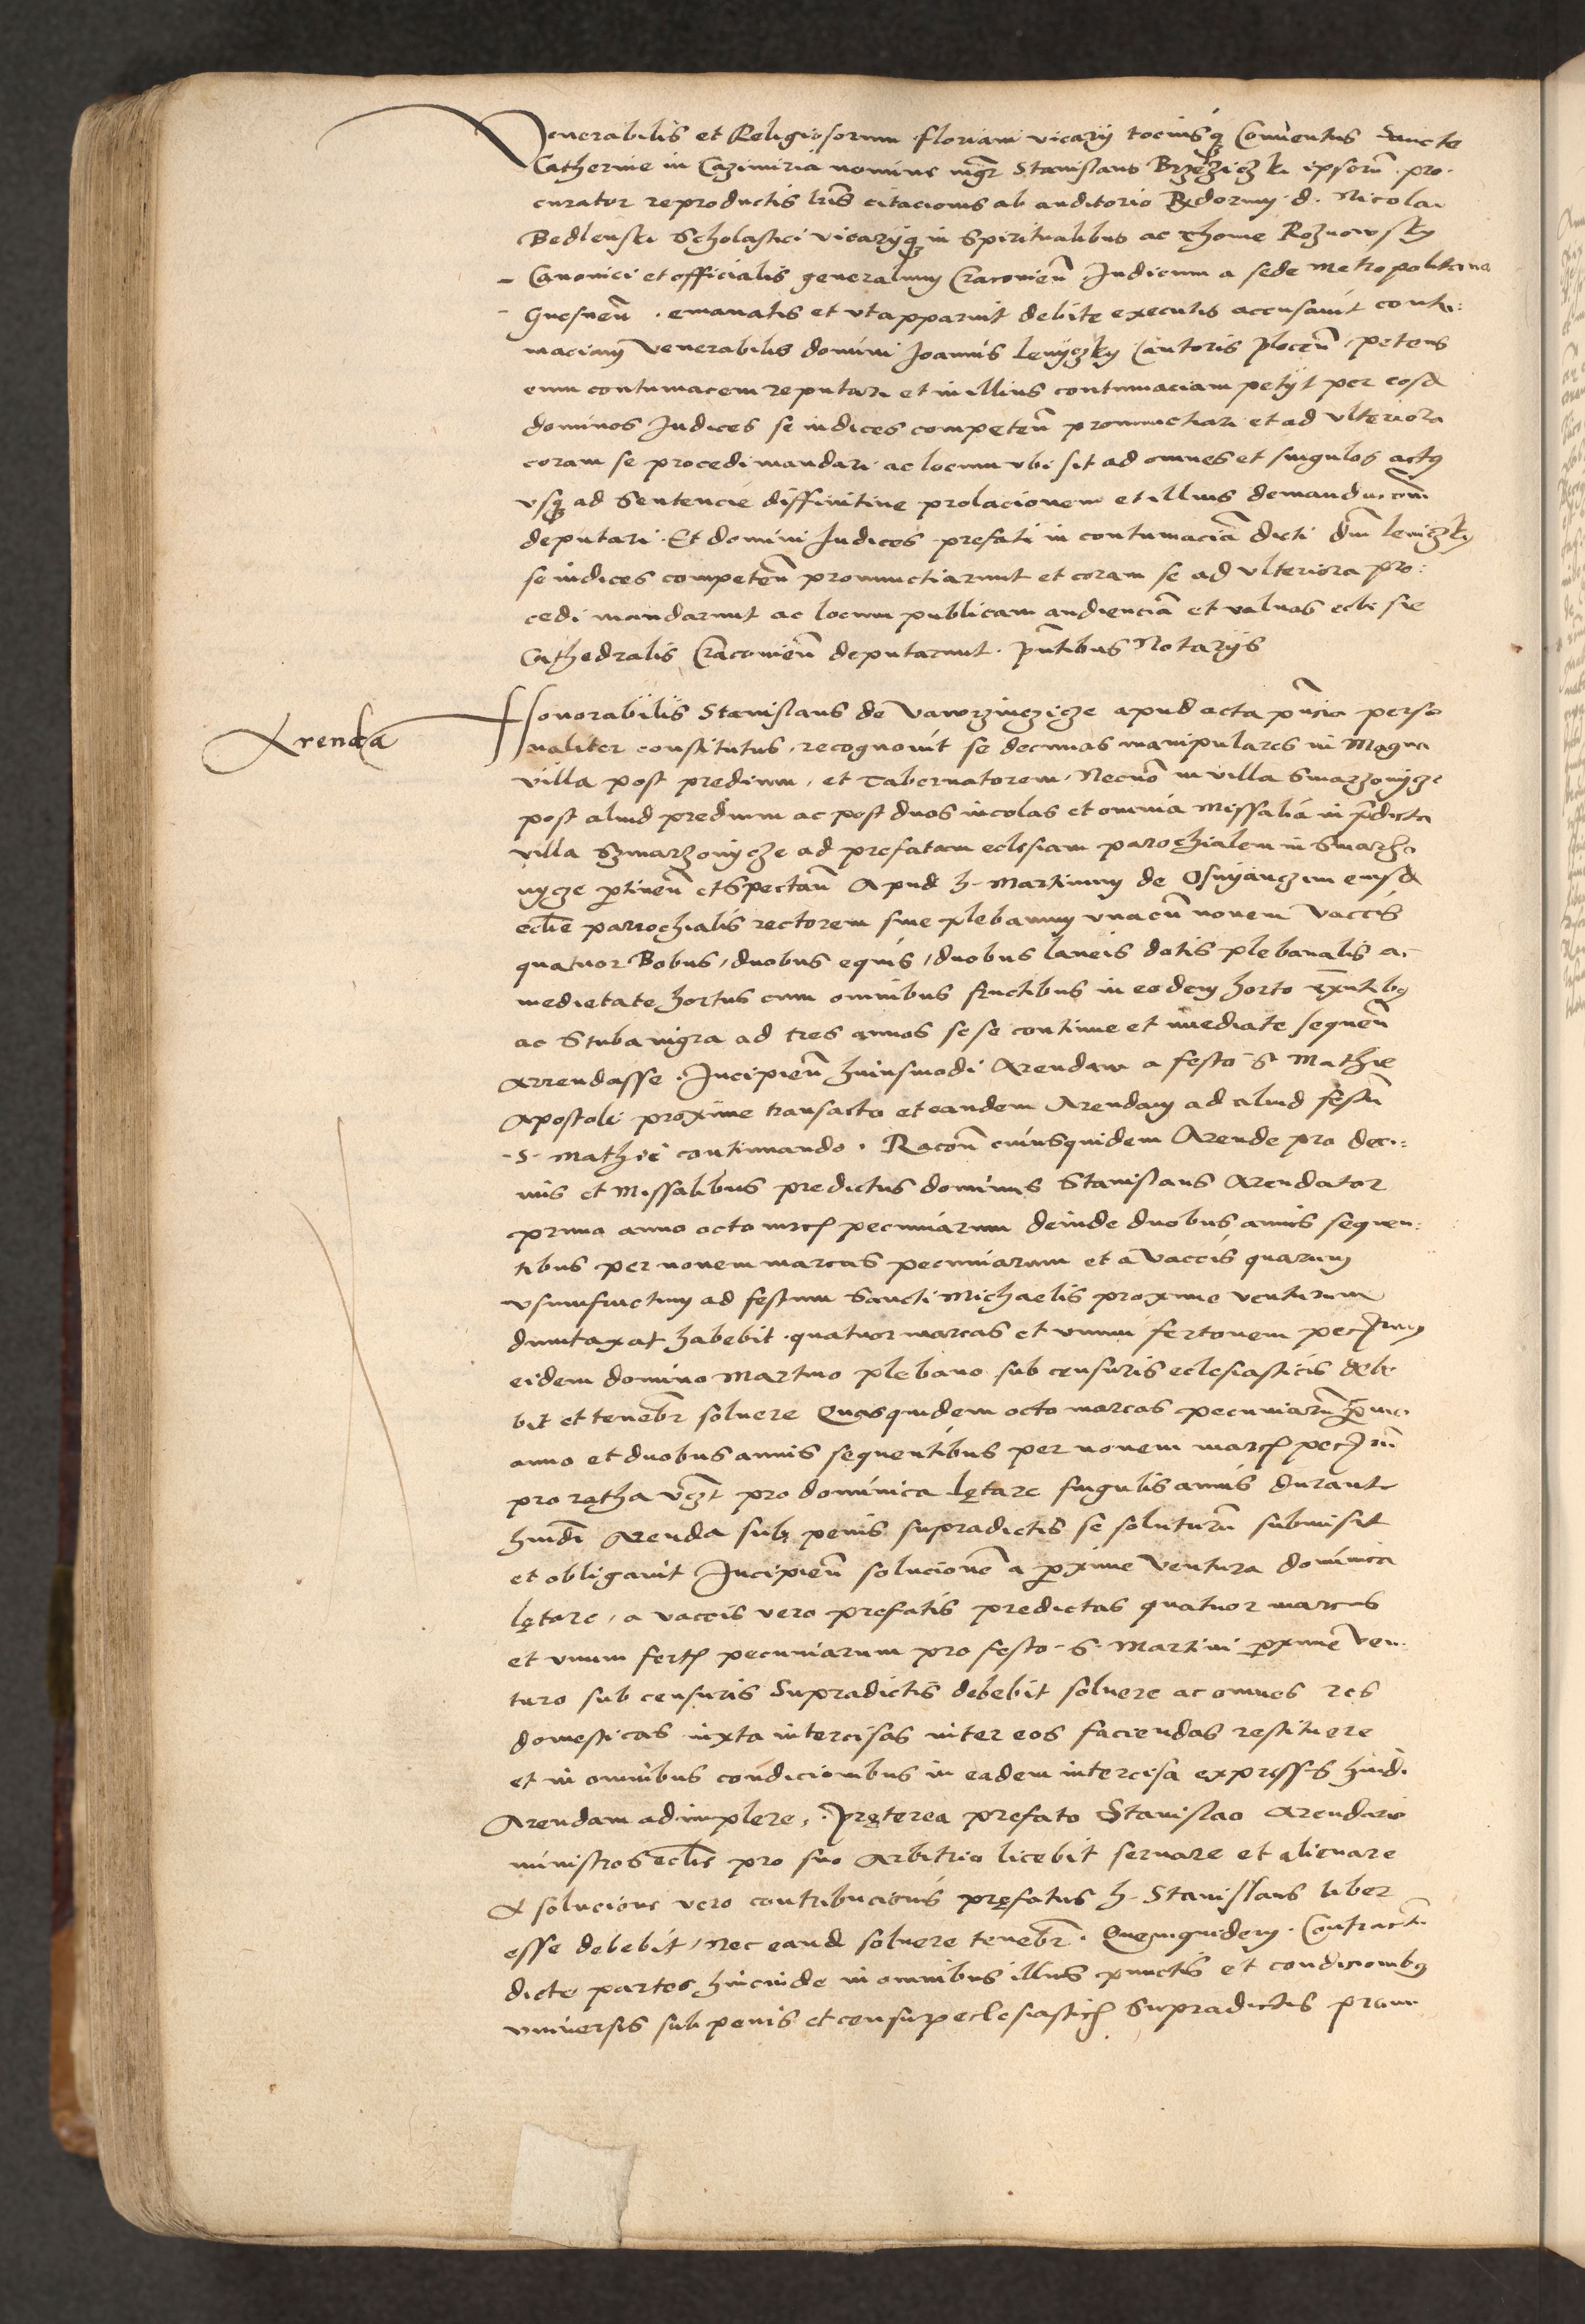 Venerabilis et Religiosorum Floriani vicarij tociusq Conuentus Sancte
Catherine in Cazimiria nomine mgr Stanislaus Brzeziczki ipsorum pro-
curator reproductis lris citacionis ab auditorio Rdorum d. Nicolai
Bedlenski Scholastici vicarijq in Spiritualibus ac Thome Roznowsky
Canonici et officialis generalium Cracouien Iudicum a sede Metropolitana
Gnesnen emanatis et vt apparuit debite executis accusauit contu:
maciam Venerabilis domini Joannis Lenyczky Cantoris Plocen petens
eum contumacem reputari et in illius contumaciam petijt per eosd
dominos Iudices se iudices competen pronunctiari et ad vlteriora
coram se procedi mandari ac locum vbi sit ad omnes et singulos actus
vsq ad Sentencie diffinitiue prolacionem et illius demandacom
deputari. Et domini Iudices prefati in contumaciã dicti dni Leniczky
se iudices competen pronunctiarunt et coram se ad vlteriora pro:
cedi mandarunt ac locum publicam audienciã et valuas eclesie
Cathedralis Cracouien deputarunt. pntibus Notarijs
Arenda
Honorabilis Stanislaus de Vawrzinczicze apud acta pncia perso
naliter constitutus, recognouit se decimas manipulares in Magna
villa post predium, et Tabernatorem, Necnõ in villa Smarzowycze
post aliud predium ac post duos incolas et omnia Missalia in prdicta
villa Szmarzowycze ad prefatam eclesiam parochialem in Smarzo
nycze ptinen et Spectan Apud h. Martinum de Osnyanczim eiusd
eclie parrochialis rectorem siue plebanum vnacu nouem vaccis
quatuor Bobus, duobus equis, duobus laneis dotis plebanalis ac
medietate hortus cum omnibus fructibus in eodem horto exntibus
ac Stuba nigra ad tres annos sese continue et imediate sequen
Arrendasse. Incipien huiusmodi Arendam a festo S. Mathie
Apostoli proxime transacto et eandem Arendam ad aliud festu
S. Mathie continuando. Racon cuiusquidem Arende pro deci:
mis et Missalibus predictus dominus Stanislaus Arendator
primo anno octo mrcs pecuniarum deinde duobus annis sequen:
tibus per nouem marcas pecuniarum et a vaccis quarum
vsumfructum ad festum Sancti Michaelis proxime venturum
duntaxat habebit quatuor marcas et vnum fertonem pec
eidem domino Martino plebano sub censuris eclesiasticis debe
bit et tenebr soluere Quasquidem octo marcas pecuniaru primo
anno et duobus annis sequentibus per nouem marcs pecru
pro ratha vczt pro dominica lętare singulis annis durante
huidi Arenda sub penis supradictis se soluturu submisit
et obligauit Incipien solucionẽ a pxime ventura dominica
lętare, a vaccis vero prefatis predictas quatuor marcas
et vnum fert pecuniarum pro festo S. Martini pxime ven
turo sub censuris Supradictis debebit soluere ac omnes res
domesticas iuxta intercisas inter eos faciendas restituere
et in omnibus condicionibus in eadem intercisa expressis huidi
Arendam adimplere, pręterea prefato Stanislao Arendario
ministros eclie pro suo Arbitrio licebit seruare et alienare
A solucione vero contribucionis pręfatus h. Stanislaus liber
esse debebit, nec eand soluere tenebr. Quemquidem Contractu
dicte partes hincinde in omnibus illius punctis et condicionibus
vniuersis sub penis et censur eclesiastics Supradictis